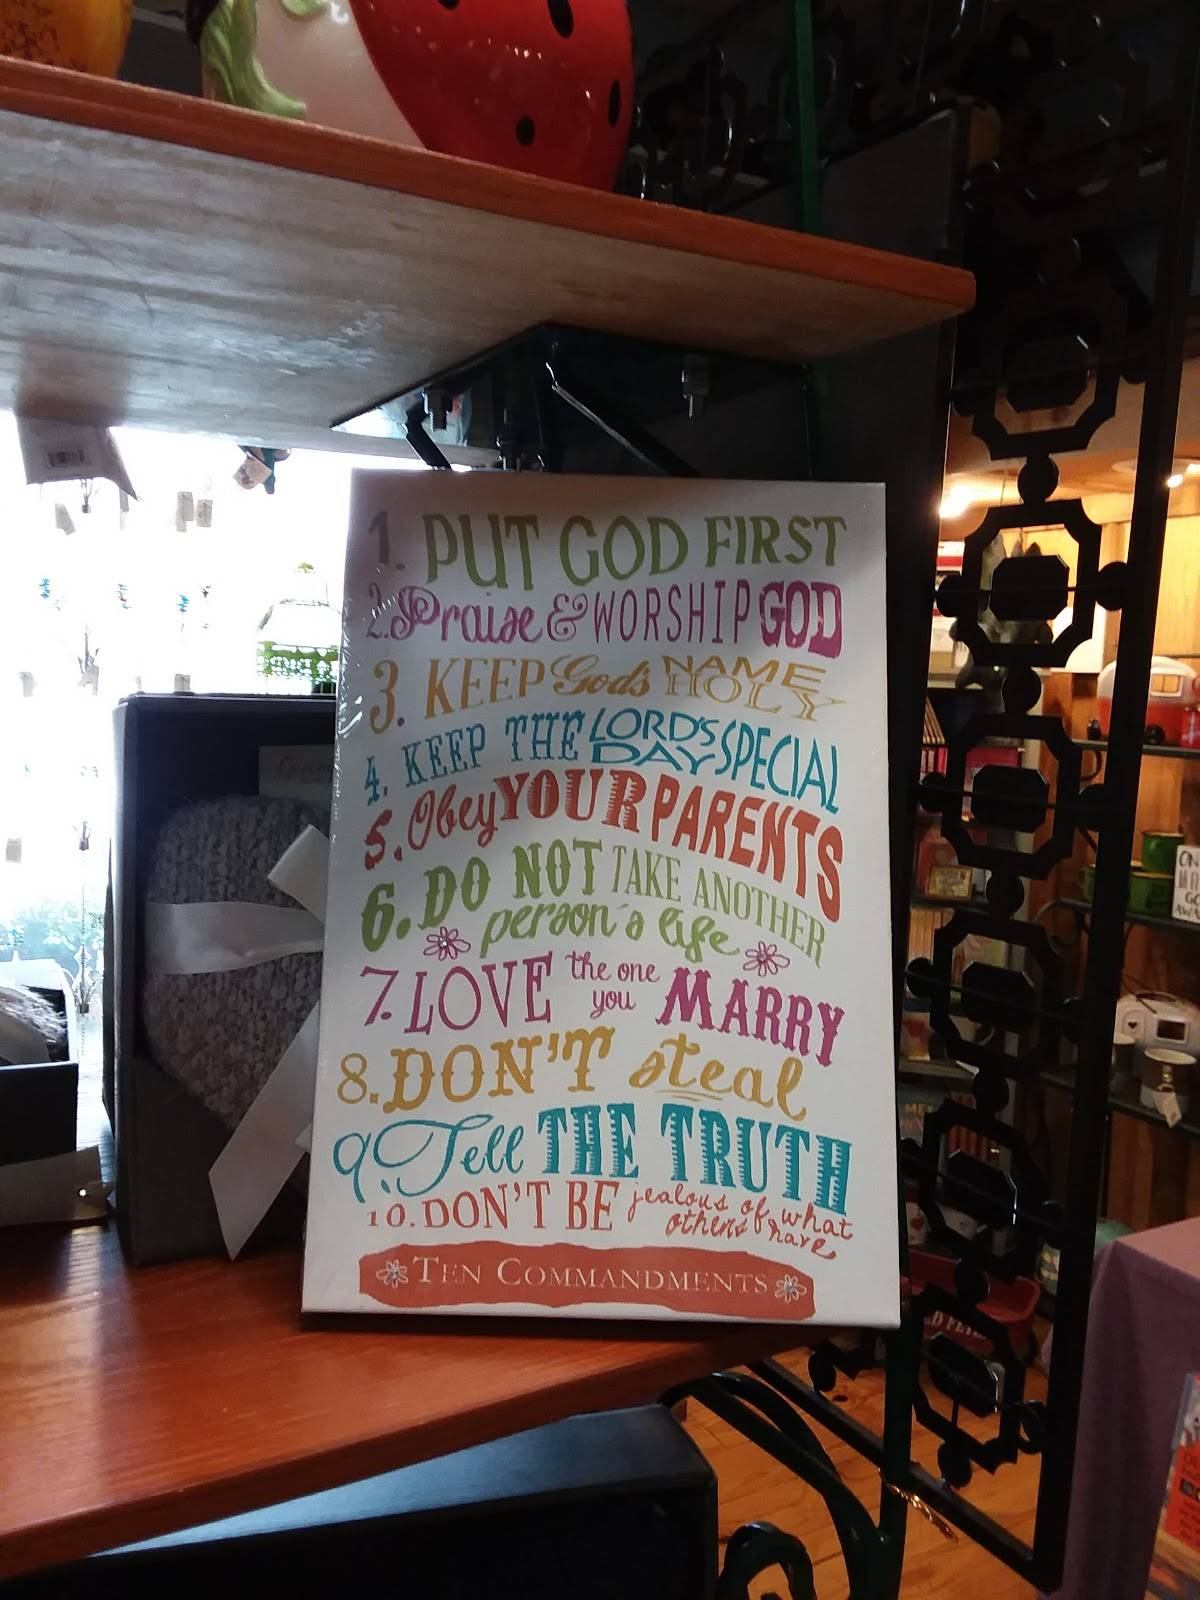 1. PUT GOD FIRST
2. Praise & WORSHIP GOD
3. KEEP God's NAME HOLY
4. KEEP THE LORD'S DAY SPECIAL
5. Obey YOUR PARENTS
6. DO NOT TAKE ANOTHER
person's life
7. LOVE the one you MARRY
8. DON'T steal
9. Tell THE TRUTH
10. DON'T BE jealous of what others have
TEN COMMANDMENTS